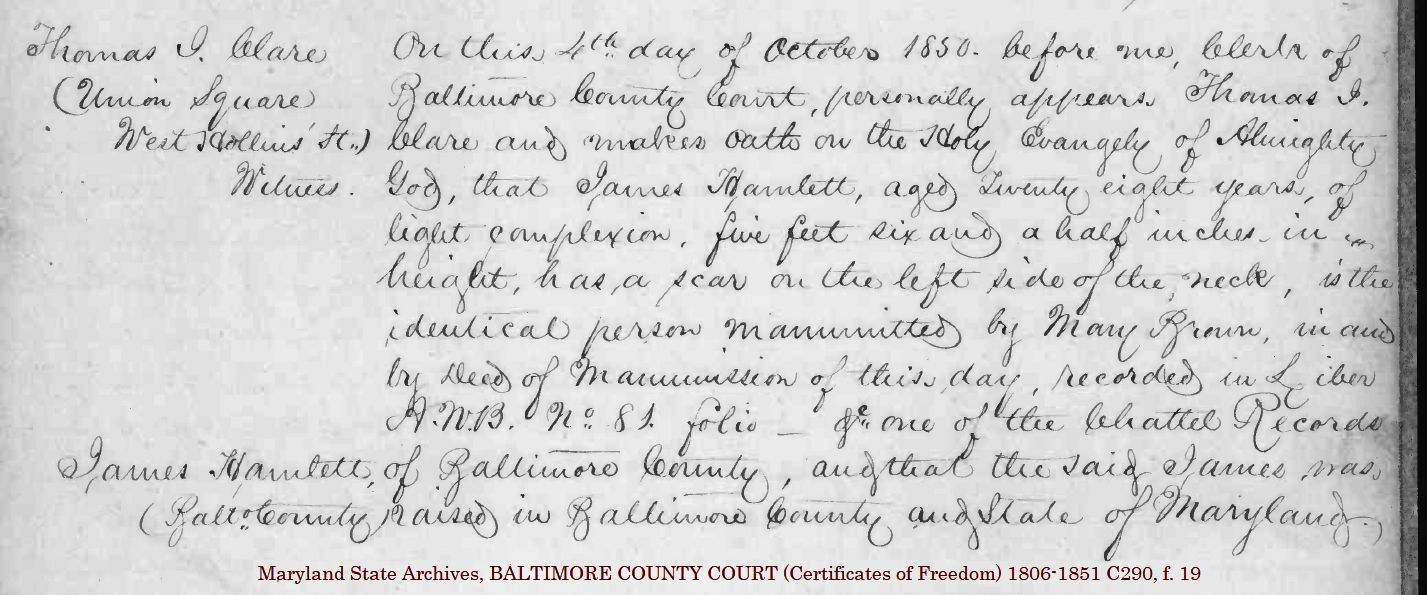 Thomas J. Clare
(Union Square
West Hollins' St.)
Witness.
On this 4th day of October 1850. before me, Clerk of
Baltimore County Court, personally appears Thomas J.
Clare and makes oath on the Holy Evangely of Almighty
God, that James Hamlett, aged Twenty eight years, of
light complexion, five feet six and a half inches in
height, has a scar on the left side of the neck, is the
identical person manumitted by Mary Brown, in and
by Deed of Manumission of this day, recorded in Liber
A.W.B. No. 81. folio _ &c one of the Chattel Records
James Hamlett,
(Balto County)
of Baltimore County, and that the said James was
raised in Baltimore County and State of Maryland.
Maryland State Archives, BALTIMORE COUNTY COURT (Certificates of Freedom) 1806-1851 C290, f. 19